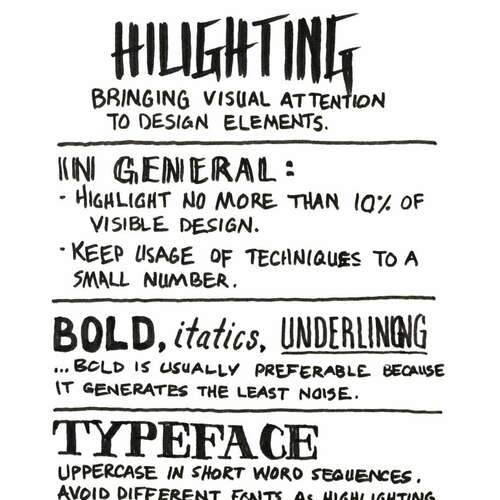 HILIGHTING
BRINGING VISUAL ATTENTION
TO DESIGN ELEMENTS.
IN GENERAL:
· HIGHLIGHT NO MORE THAN 10% OF
VISIBLE DESIGN.
· KEEP USAGE OF TECHNIQUES TO A
SMALL NUMBER.
BOLD, itatics, UNDERLINGNG
...BOLD IS USUALLY PREFERABLE BECAUSE
IT GENERATES THE LEAST NOISE.
TYPEFACE
UPPERCASE IN SHORT WORD SEQUENCES.
AVOID DIFFERENT FONTS AS HIGHLIGHTING